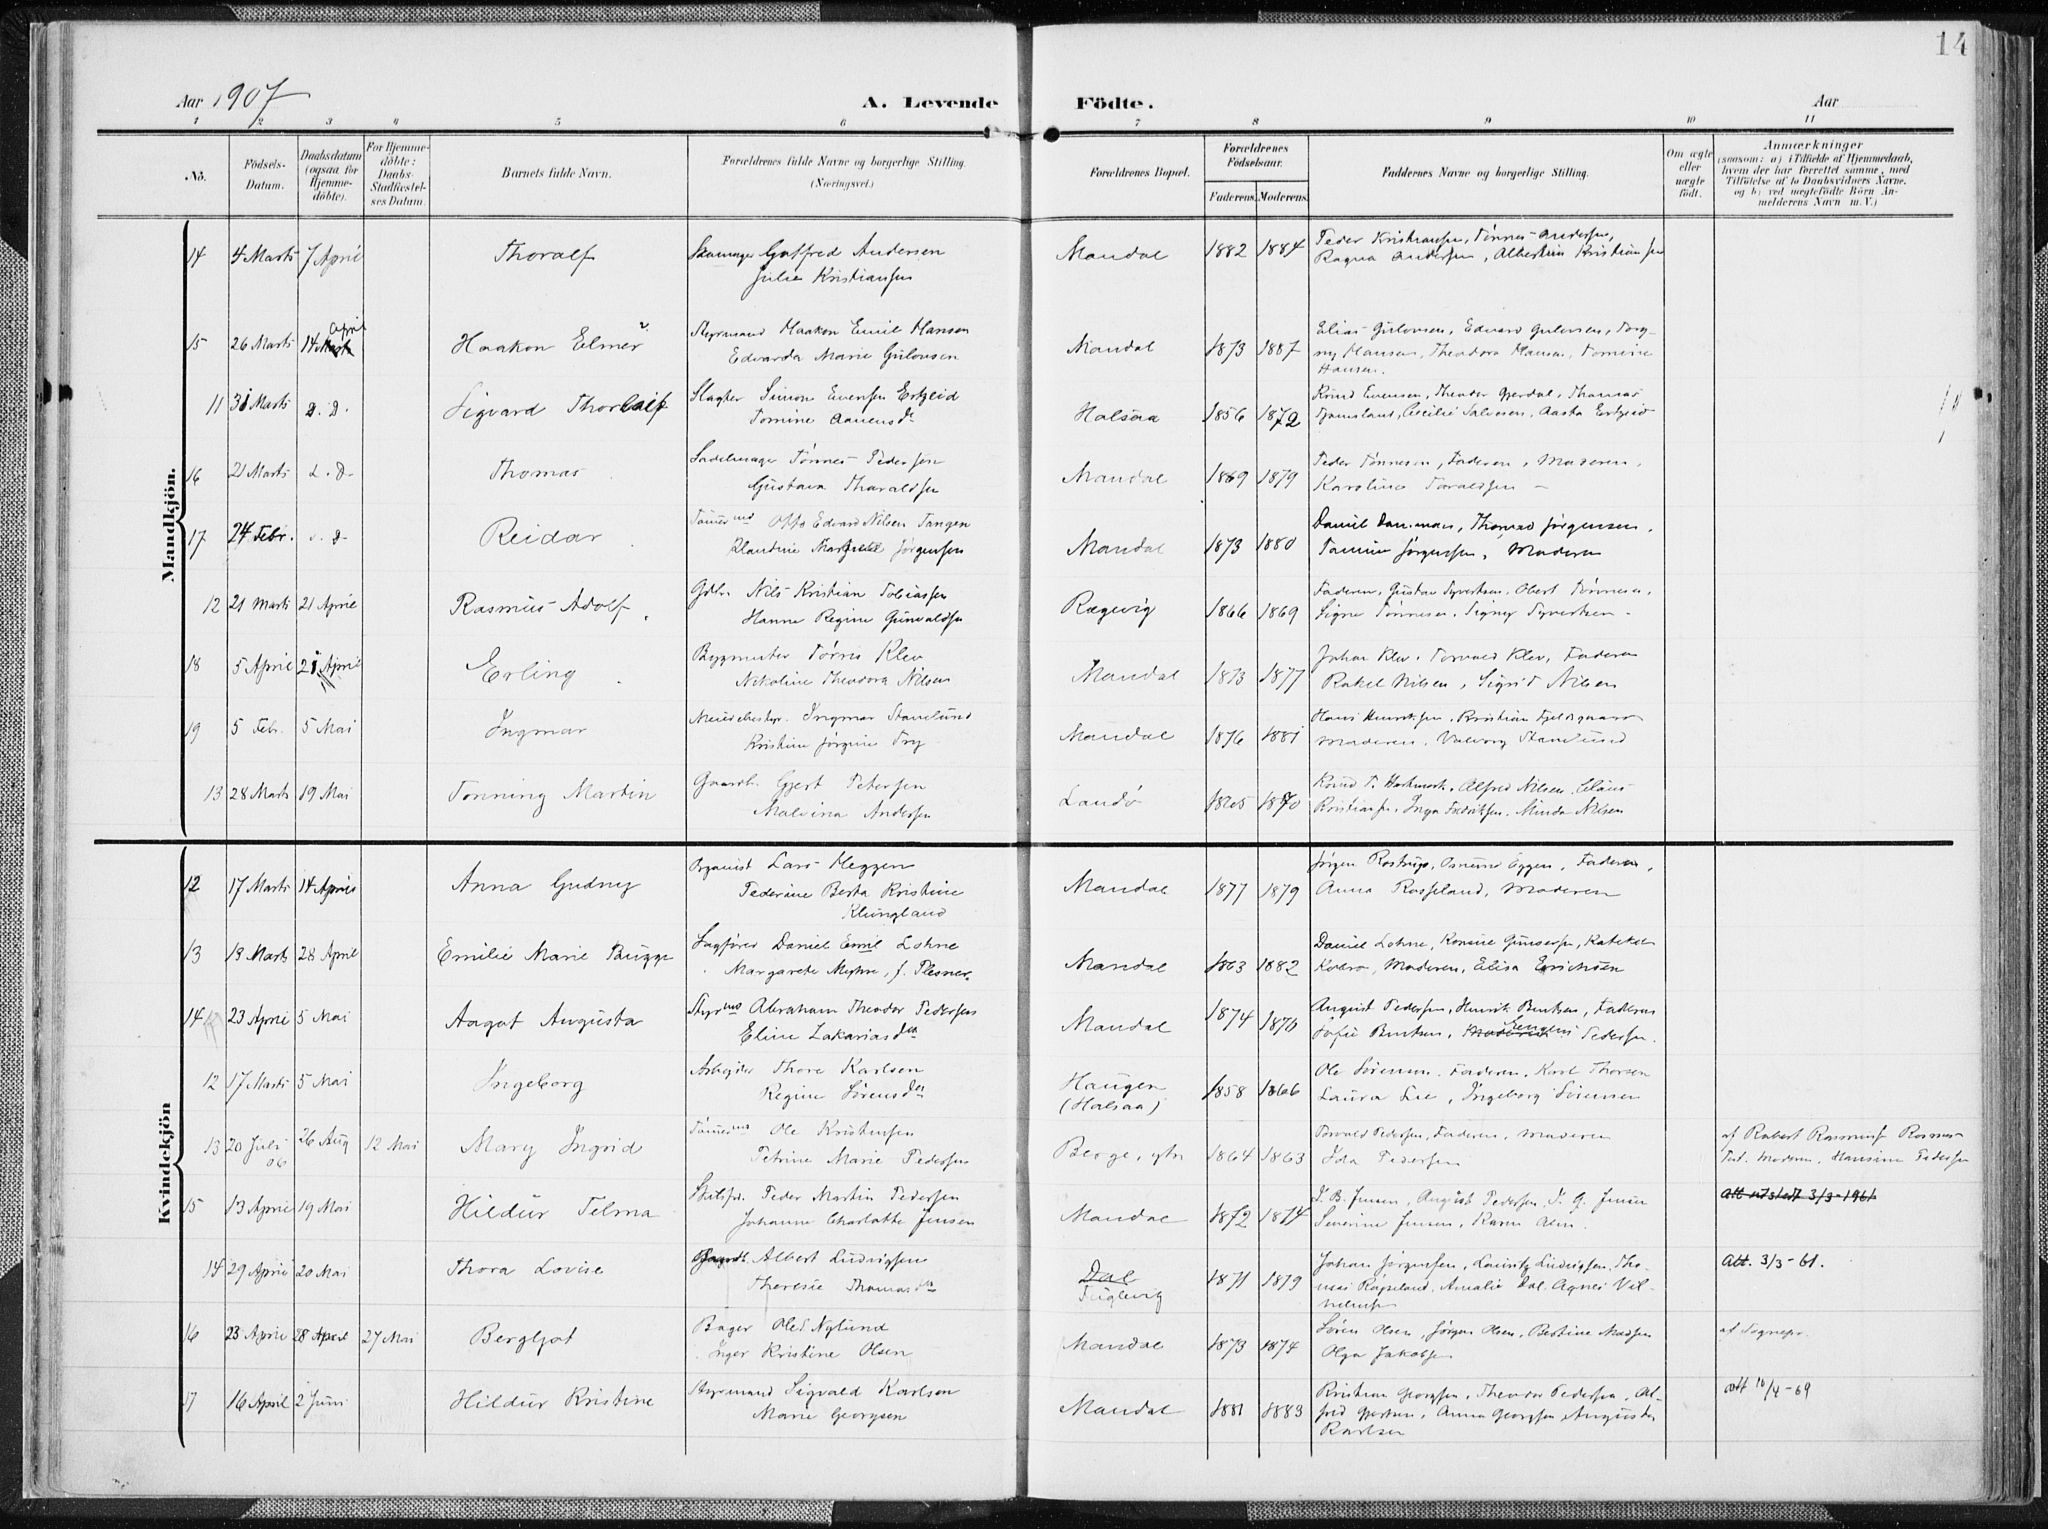 14
Aar 1907
A. Levende Födte.
Aar
1 2 3 4 5 6 7 8 9 10 11
No.
Födsels-Datum.
Daabsdatum (ogsaa for Hjemmedöbte).
For Hjemmedöbte: Daabs-Stadfæstelses Datum.
Barnets fulde Navn.
Forældrenes fulde Navne og borgerlige Stilling. (Næringsvei.)
Forældrenes Bopæl.
Forældrenes Födselsaar.
Faderens. Moderens.
Faddernes Navne og borgerlige Stilling.
Om ægte eller uægte födt.
Anmærkninger
(saasom: a) i Tilfælde af Hjemmedaab,
hvem der har forrettet samme, med
Tilföielse af to Daabsvidners Navne.
og b) ved uægtefödte Börn An-
melderens Navn m. V.)
Mandkjön.
14 4 Marts 7 April Thoralf Skomager Gotfred Andersen Mandal 1882 1884 Peder Kristiansen, Tönnes Andersen,
Julie Kristiansen Ragna Andersen, Albertine Kristiansen
15 26 Marts 14 April Haakon Elmer Styrmand Haakon Emil Hansen Mandal 1873 1887 Elias Gulovsen, Edvard Gulovsen, Torg-
Edvarda Marie Gulovsen ny Hansen, Theodora Hansen, Tomine
Hansen.
11 31 Marts s. D. Sigvard Thorleif Slagter Simon Evensen Ertzeid Halsaa 1856 1872 Knud Evensen, Theodor Gjerdal, Thomas
Tomine Aanensdr Tjomsland, Cecilie Salvesen, Aasta Ertzeid
16 21 Marts s. D. Thomas Sadelmager Tönnes Pedersen Mandal 1869 1879 Peder Tönnesen, Faderen, Moderen,
Gustava Tharaldsen Karoline Toraldsen
17 24 Febr. s. D. Reidar Tömermd Otto Edvard Nilsen Tangen Mandal 1873 1880 Daniel Danman, Thomas Jörgensen,
Klandine Jörgensen Tomine Jörgensen, Moderen
12 21 Marts 21 April Rasmus Adolf Gdbr. Nils Kristian Tobiassen Rægevig 1866 1869 Faderen, Gustav Syvertsen, Obert Tönnesen,
Hanne Regine Gunvaldsen Signe Tönnesen, Signy Syvertsen
18 5 April 21 April Erling Bygmester Törres Klev Mandal 1873 1877 Johan Klev, Torvald Klev, Faderen
Nikoline Theodora Nilsen Rakel Nilsen, Sigrid Nilsen
19 5 Febr. 5 Mai Ingmar Ingmar Stanlund Mandal 1876 1881 Hans Henriksen, Kristian Fjeldsgaard
Kristine Jörgine Try Moderen, Valborg Stanlund
13 28 Marts 19 Mai Tönning Martin Gaardbr. Gjert Petersen Landö 1865 1870 Knud T. Hartmark, Alfred Nilsen, Claus
Malvina Andersen Kristiansen, Inga Fredriksen, Minda Nilsen
Kvindekjön
12 17 Marts 14 April Anna Gudny Organist Lars Heggen Mandal 1877 1879 Jörgen Rostrup, Osmund Eggen, Faderen,
Pederine Berta Kristine Anna Rosseland, Moderen
Klungland
13 13 Marts 28 April Emilie Marie Bugge Sagförer Daniel Emil Lohne Mandal 1863 1882 Daniel Lohne, Gundersen,
Margarete Myhre, f. Plesner. Moderen, Elisa Erichsen
14 23 April 5 Mai Aagot Augusta Styrmd Abraham Theodor Pedersen Mandal 1874 1870 August Pedersen, Henrik Bentsen, Faderen
Eline Zakariasdtr Sofie Bentsen, Pedersen.
12 17 Marts 5 Mai Ingeborg Arbejder Thore Karlsen Haugen 1858 1866 Ole Sörensen, Faderen, Karl Thorsen
Regine Sörensdtr (Halsaa) Laura Lie, Ingeborg Sörensen
13 20 Juli 06 26 Aug 12 Mai Mary Ingrid Tömermd Ole Kristensen 1864 1863 Torvald Pedersen, Faderen, Moderen af Robert Rasmussen
Petrine Marie Pedersen Ida Pedersen Moderen, Hansine Pedersen
15 13 April 19 Mai Hildur Telma Skibsf. Peder Martin Pedersen Mandal 1872 1874 J. B. Jensen, August Pedersen, J. G. Jensen Att utstedt 3/3-1961
Johanne Charlotte Jensen Severine Jensen, Karen Olsen.
14 29 April 20 Mai Thora Lovise Albert Ludvigsen Dal 1871 1879 Johan Jörgensen, Lauritz Ludvigsen, Tho- Att. 3/3-61.
Theresie Thomasdtr Fuglevig mas Röysland, Amalie Dal, Agnes Vil-
helmsen
16 23 April 28 April 27 Mai Bergljot Bager Oled Nylund Mandal 1873 1874 Sören Olsen, Jörgen Olsen, Bertine Madsen af Sognepr.
Inger Kristine Olsen Olga Jakobsen
17 16 April 2 Juni Hildur Kristine Styrmand Sigvald Karlsen Mandal 1881 1883 Kristian Georgsen, Theodor Pedersen, Al- att 10/4-69
Marie Georgsen fred Gjertsen, Anna Georgsen, Augusta
Karlsen